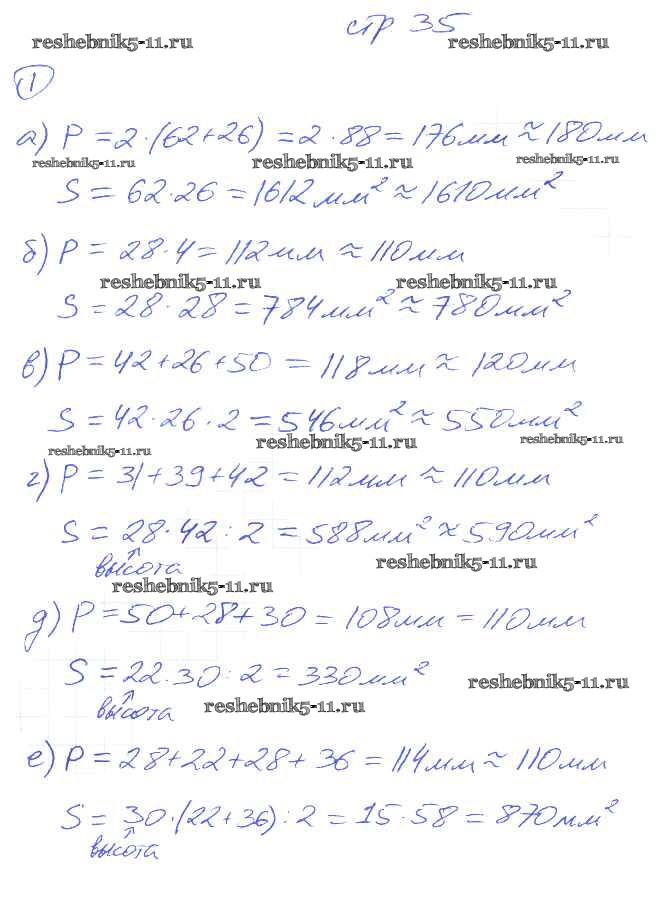 стр 35
reshebnik5-11.ru reshebnik5-11.ru
1
а) P = 2·(62+26) = 2·88 = 176мм ≈ 180мм
reshebnik5-11.ru reshebnik5-11.ru reshebnik5-11.ru
S = 62·26 = 1612мм² ≈ 1610мм²
б) P = 28·4 = 112мм ≈ 110мм
reshebnik5-11.ru reshebnik5-11.ru
S = 28·28 = 784мм² ≈ 780мм²
в) P = 42+26+50 = 118мм ≈ 120мм
S = 42·26·2 = 546мм² ≈ 550мм²
reshebnik5-11.ru reshebnik5-11.ru reshebnik5-11.ru
г) P = 31+39+42 = 112мм ≈ 110мм
S = 28·42:2 = 588мм² ≈ 590мм²
высота reshebnik5-11.ru
reshebnik5-11.ru
д) P = 50+28+30 = 108мм = 110мм
S = 22·30:2 = 330мм²
reshebnik5-11.ru
высота reshebnik5-11.ru
е) P = 28+22+28+36 = 114мм ≈ 110мм
S = 30·(22+36):2 = 15·58 = 870мм²
высота